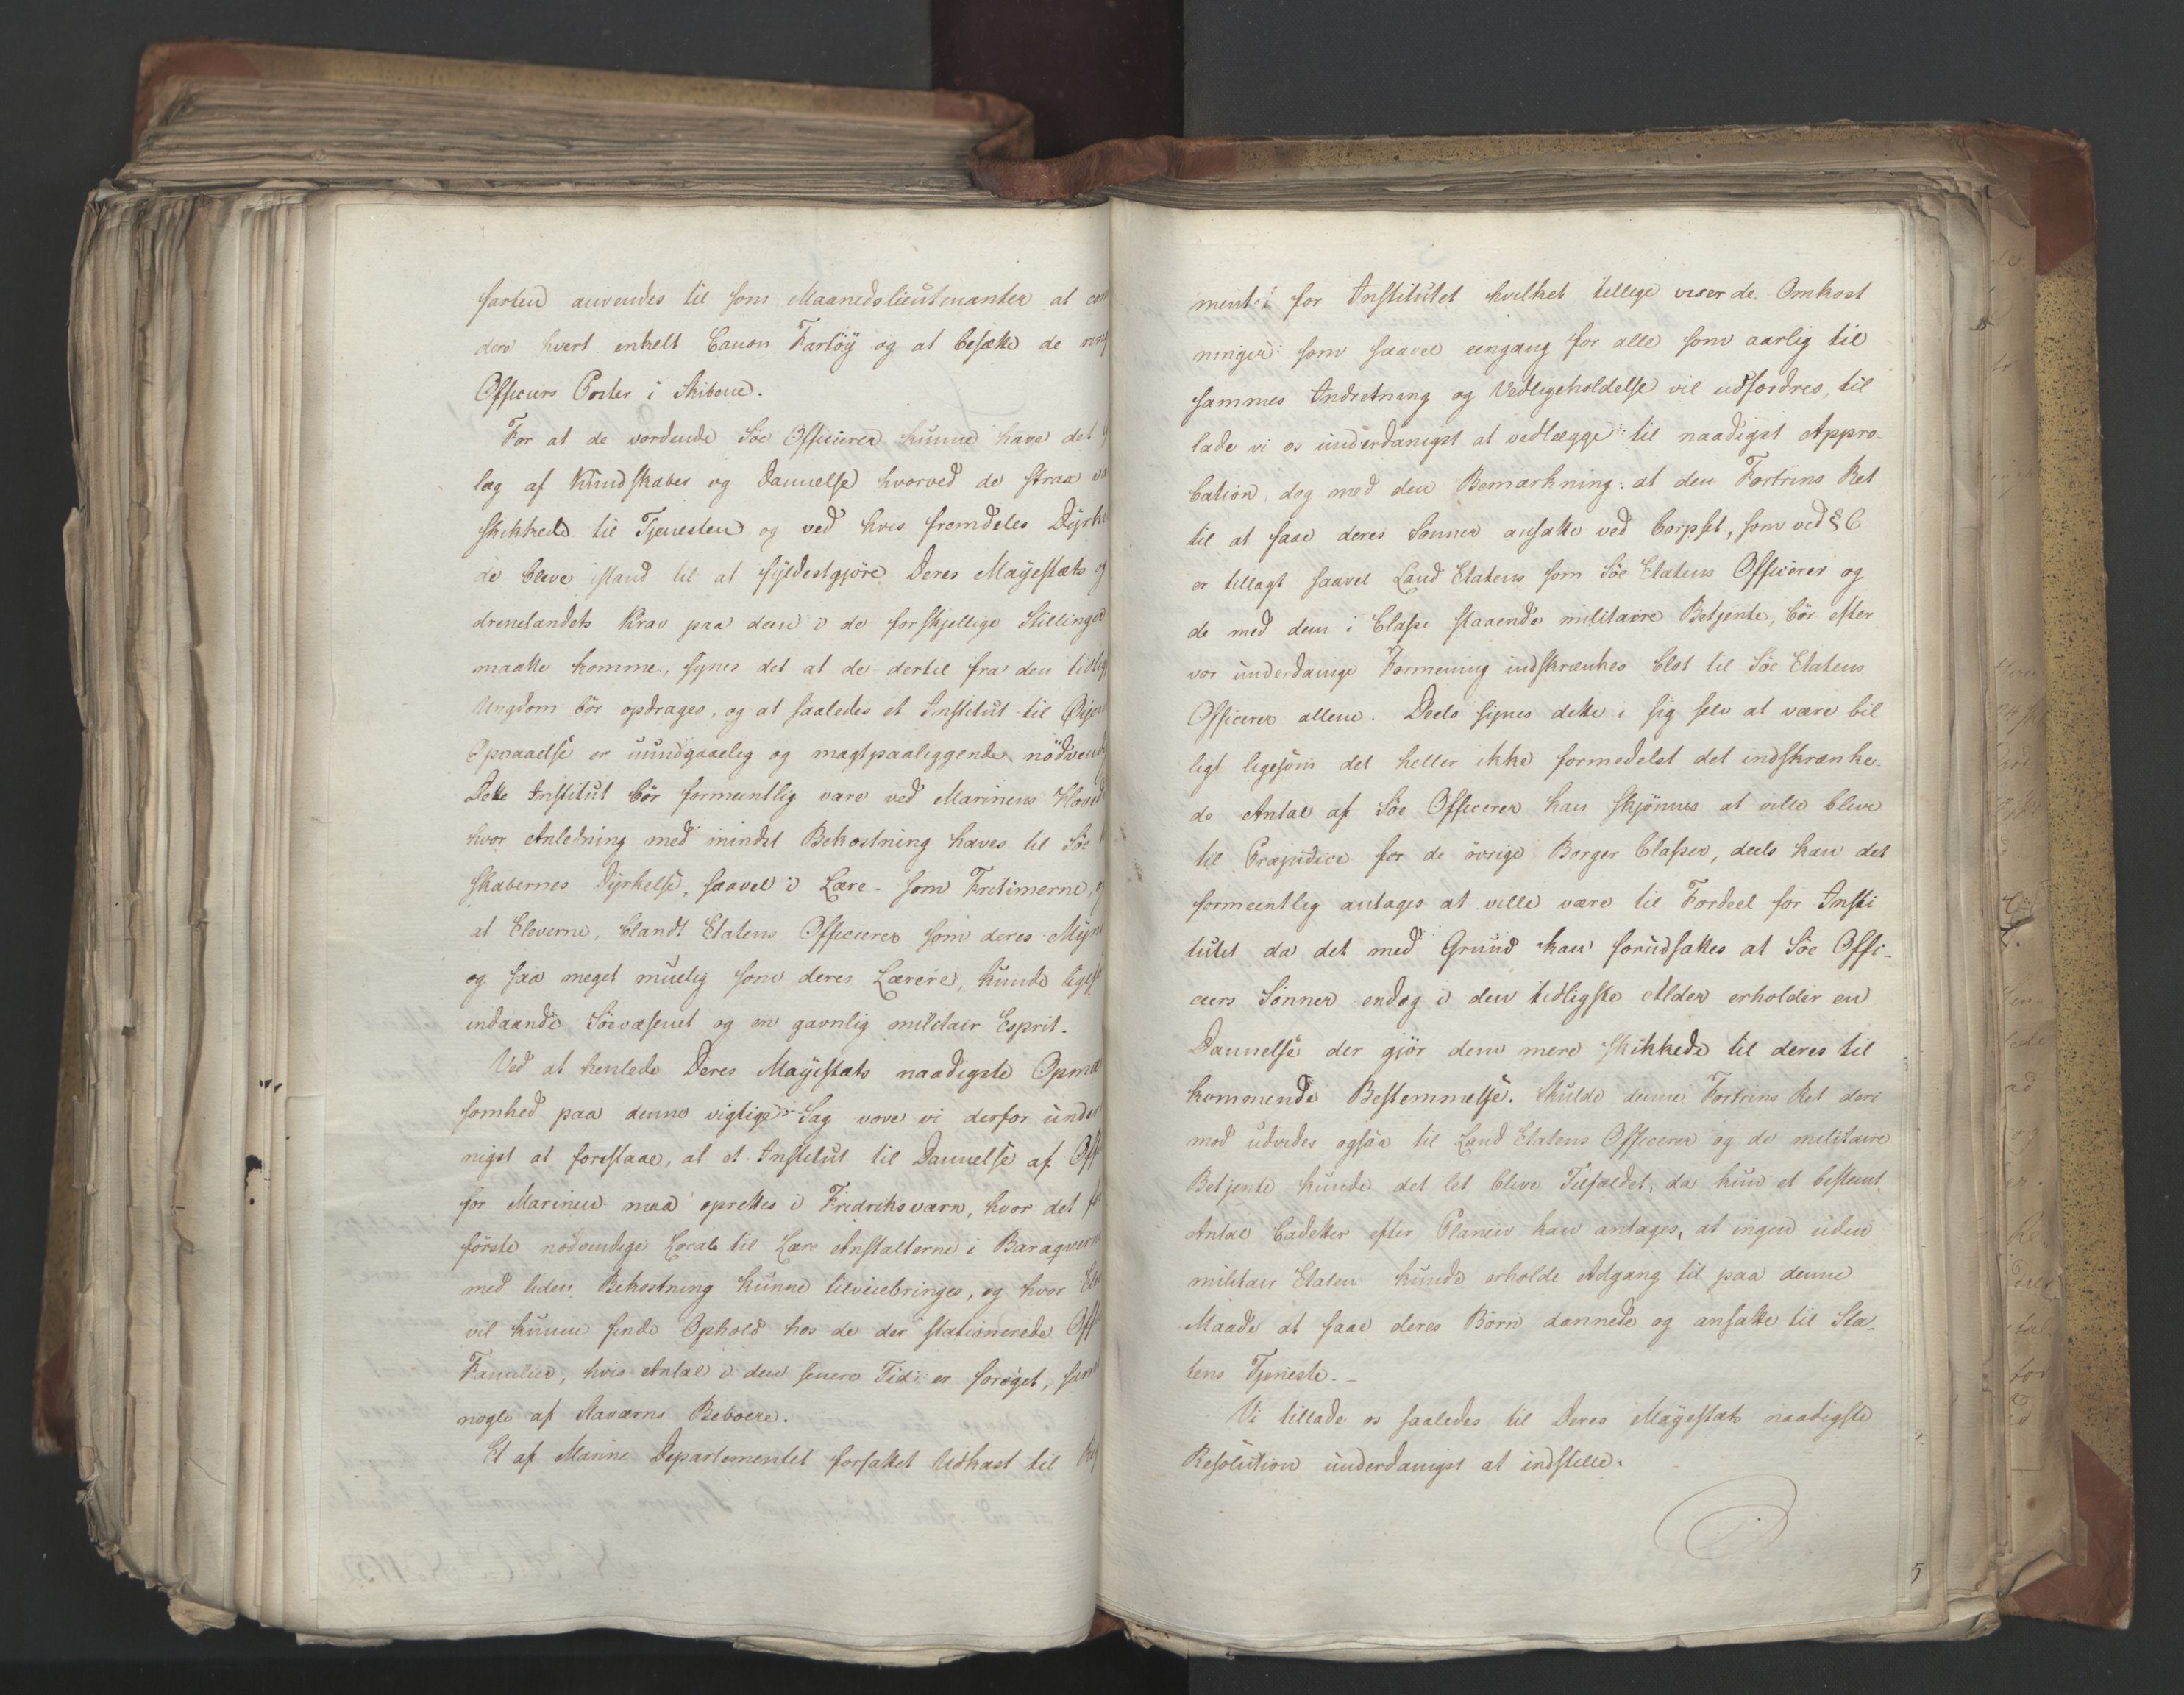 farten anvendes til som Maanedslieutenanter at com
dere hvert enkelt Canon Fartöy og at besætte de ring
Officiers Poster i Skibene.
For at de vordende Söe Officierer kunne have det
læg af Kundskaber og Dannelse hvorved de strax
skikkede til Tjenesten og ved hvis fremdeles Dyrke
de bleve istand til at fyldestgjöre Deres Mayestæts og
drenelandets Krav paa dem i de forskjellige Stillinger
maatte komme, synes det at de dertil fra den tidlig
Ungdom bör opdrages, og at saaledes et Institut til Öijem
Opnaaelse er uundgaaelig og magtpaaliggende nödvend
Dette Institut bör formeentlig være ved Marinens Hoved
hvor Anledning med mindst Bekostning haves til Söe
skabernes Dyrkelse, saavel i Lære- som Fritimerne,
at Eleverne, blandt Etatens Officierer som deres Myn
og saa meget muelig som deres Lærere, kunde ligesa
indaande Söevæsenet og en gavnlig militair Esprit.
Ved at henlede Deres Mayestæts naadigste Opmæ
somhed paa denne vigtige Sag vove vi derfor under
nigst at foreslaae, at et Institut til Dannelse af Offi
for Marinen maa oprettes i Fredriksværn, hvor det
förste nödvendige Locale til Lære Anstalterne i Baraquerne
med liden Bekostning kunne tilveiebringes, og hvor Ele
vil kunne finde Ophold hos de der stationerede Off
Familier, hvis Antal i den senere Tid er foröget, sam
nogle af Staværns Beboere.
Et af Marine Departementet forfattet Udkast til Reg
ment for Institutet hvilket tillige viser de Omkost
ninger som saavel eengang for alle som aarlig til
sammes Indretning og Vedligeholdelse vil udfordres, til
lade vi os underdanigst at vedlægge til naadigst Appro-
bation, dog med den Bemærkning: at den Fortrins Ret
til at faae deres Sönner ansatte ved Corpset, som ved § 6
er tillagt saavel Land Etatens som Söe Etatens Officierer og
de med dem i Classe staaende militaire Betjente, bör efter
vor underdanige Formening indskrænkes blot til Söe Etatens
Officerer allene. Deels synes dette i sig selv at være bil
ligt ligesom det heller ikke formedelst det indskrænke-
de Antal af Söe Officerer kan skjönnes at ville blive
til Præjudice for de övrige Borger Classer, deels kan det
formeentlig antages at ville være til Fordeel for Insti
tutet da det med Grund kan forudsættes at Söe Offi-
ceers Sönner endog i den tidligste Alder erholder en
Dannelse der gjör dem mere skikkede til deres til
kommende Bestemmelse. Skulde denne Fortrins Ret deri
mod udvides ogsaa til Land Etatens Officerer og de militaire
Betjente kunde det let blive Tilfældet, da kun et bestemt
Antal Cadetter efter Planen kan antages, at ingen uden
militair Etaten kunde erholde Adgang til paa denne
Maade at faae deres Börn dannede og ansatte til Sta-
tens Tjeneste. -
Vi tillade os saaledes til Deres Mayestæts naadigste
Resolution underdanigst at indstille.
5